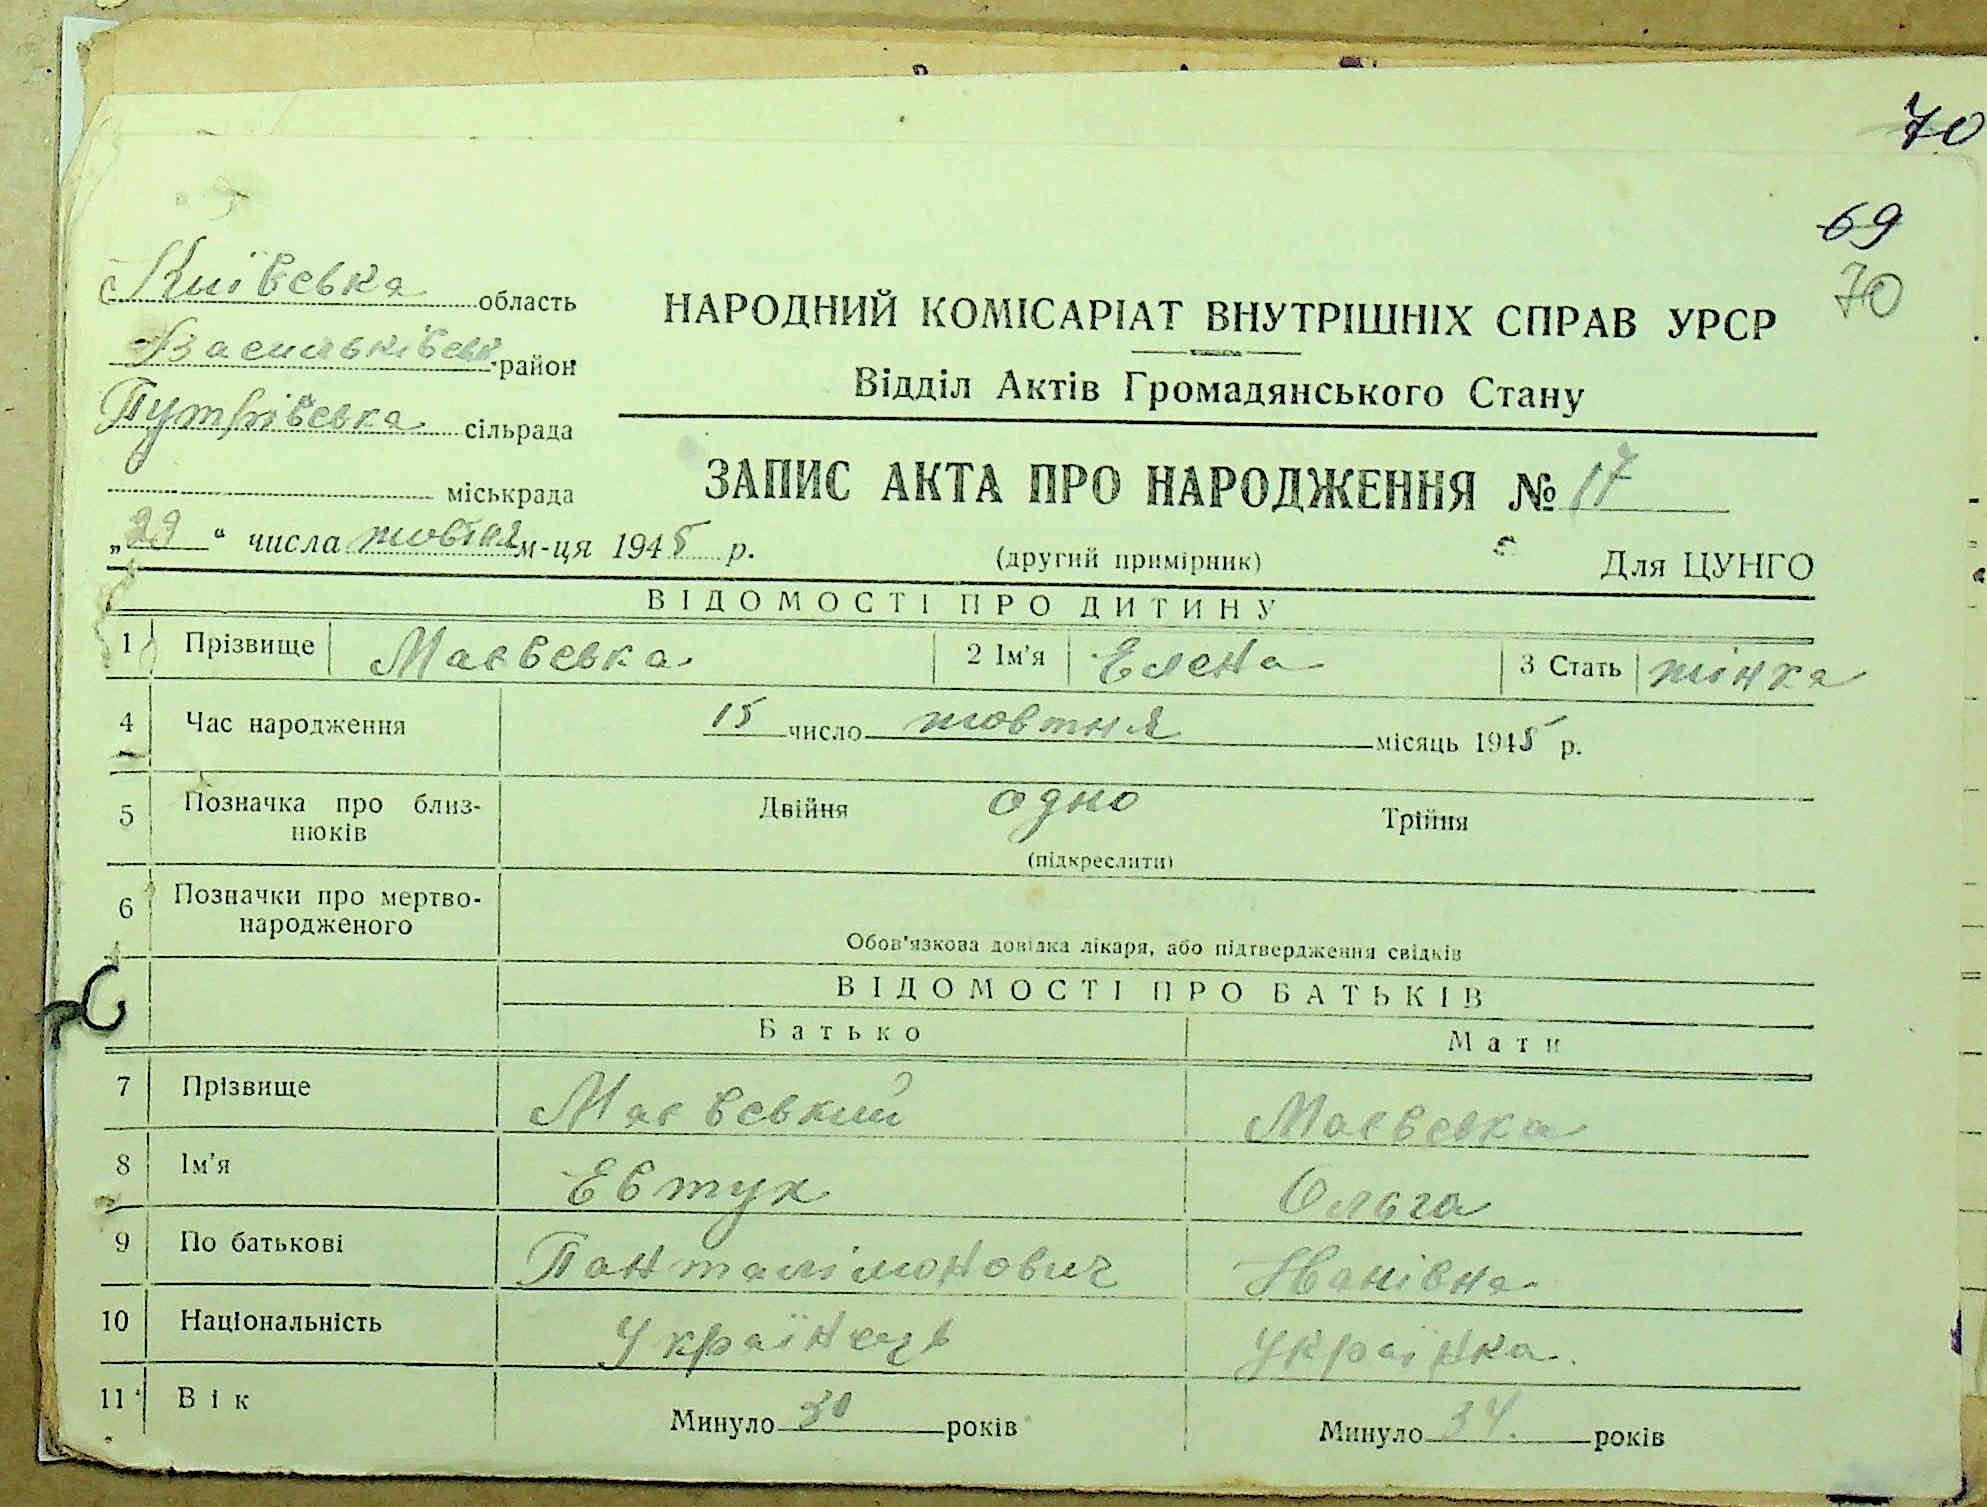 70
69
70
Київська область
Васильківськ район
Путрівська сільрада
міськрада
НАРОДНИЙ КОМІСАРІАТ ВНУТРІШНІХ СПРАВ УРСР
Відділ Актів Громадянського Стану
ЗАПИС АКТА ПРО НАРОДЖЕННЯ № 17
„29“ числа жовтня м-ця 1945 р.
(другий примірник)
Для ЦУНГО
ВІДОМОСТІ ПРО ДИТИНУ
1 Прізвище Маєвська 2 Ім'я Елена 3 Стать жінка
4 Час народження 15 число жовтня місяць 1945 р.
5 Позначка про близ-
нюків
Двійня одно Трійня
(підкреслити)
6 Позначки про мертво-
народженого
Обов'язкова довідка лікаря, або підтвердження свідків
ВІДОМОСТІ ПРО БАТЬКІВ
Батько Мати
7 Прізвище Маєвський Маєвська
8 Ім'я Евтух Ольга
9 По батькові Панталімонович Іванівна
10 Національність Українець Українка.
11 Вік Минуло 30 років Минуло 34. років